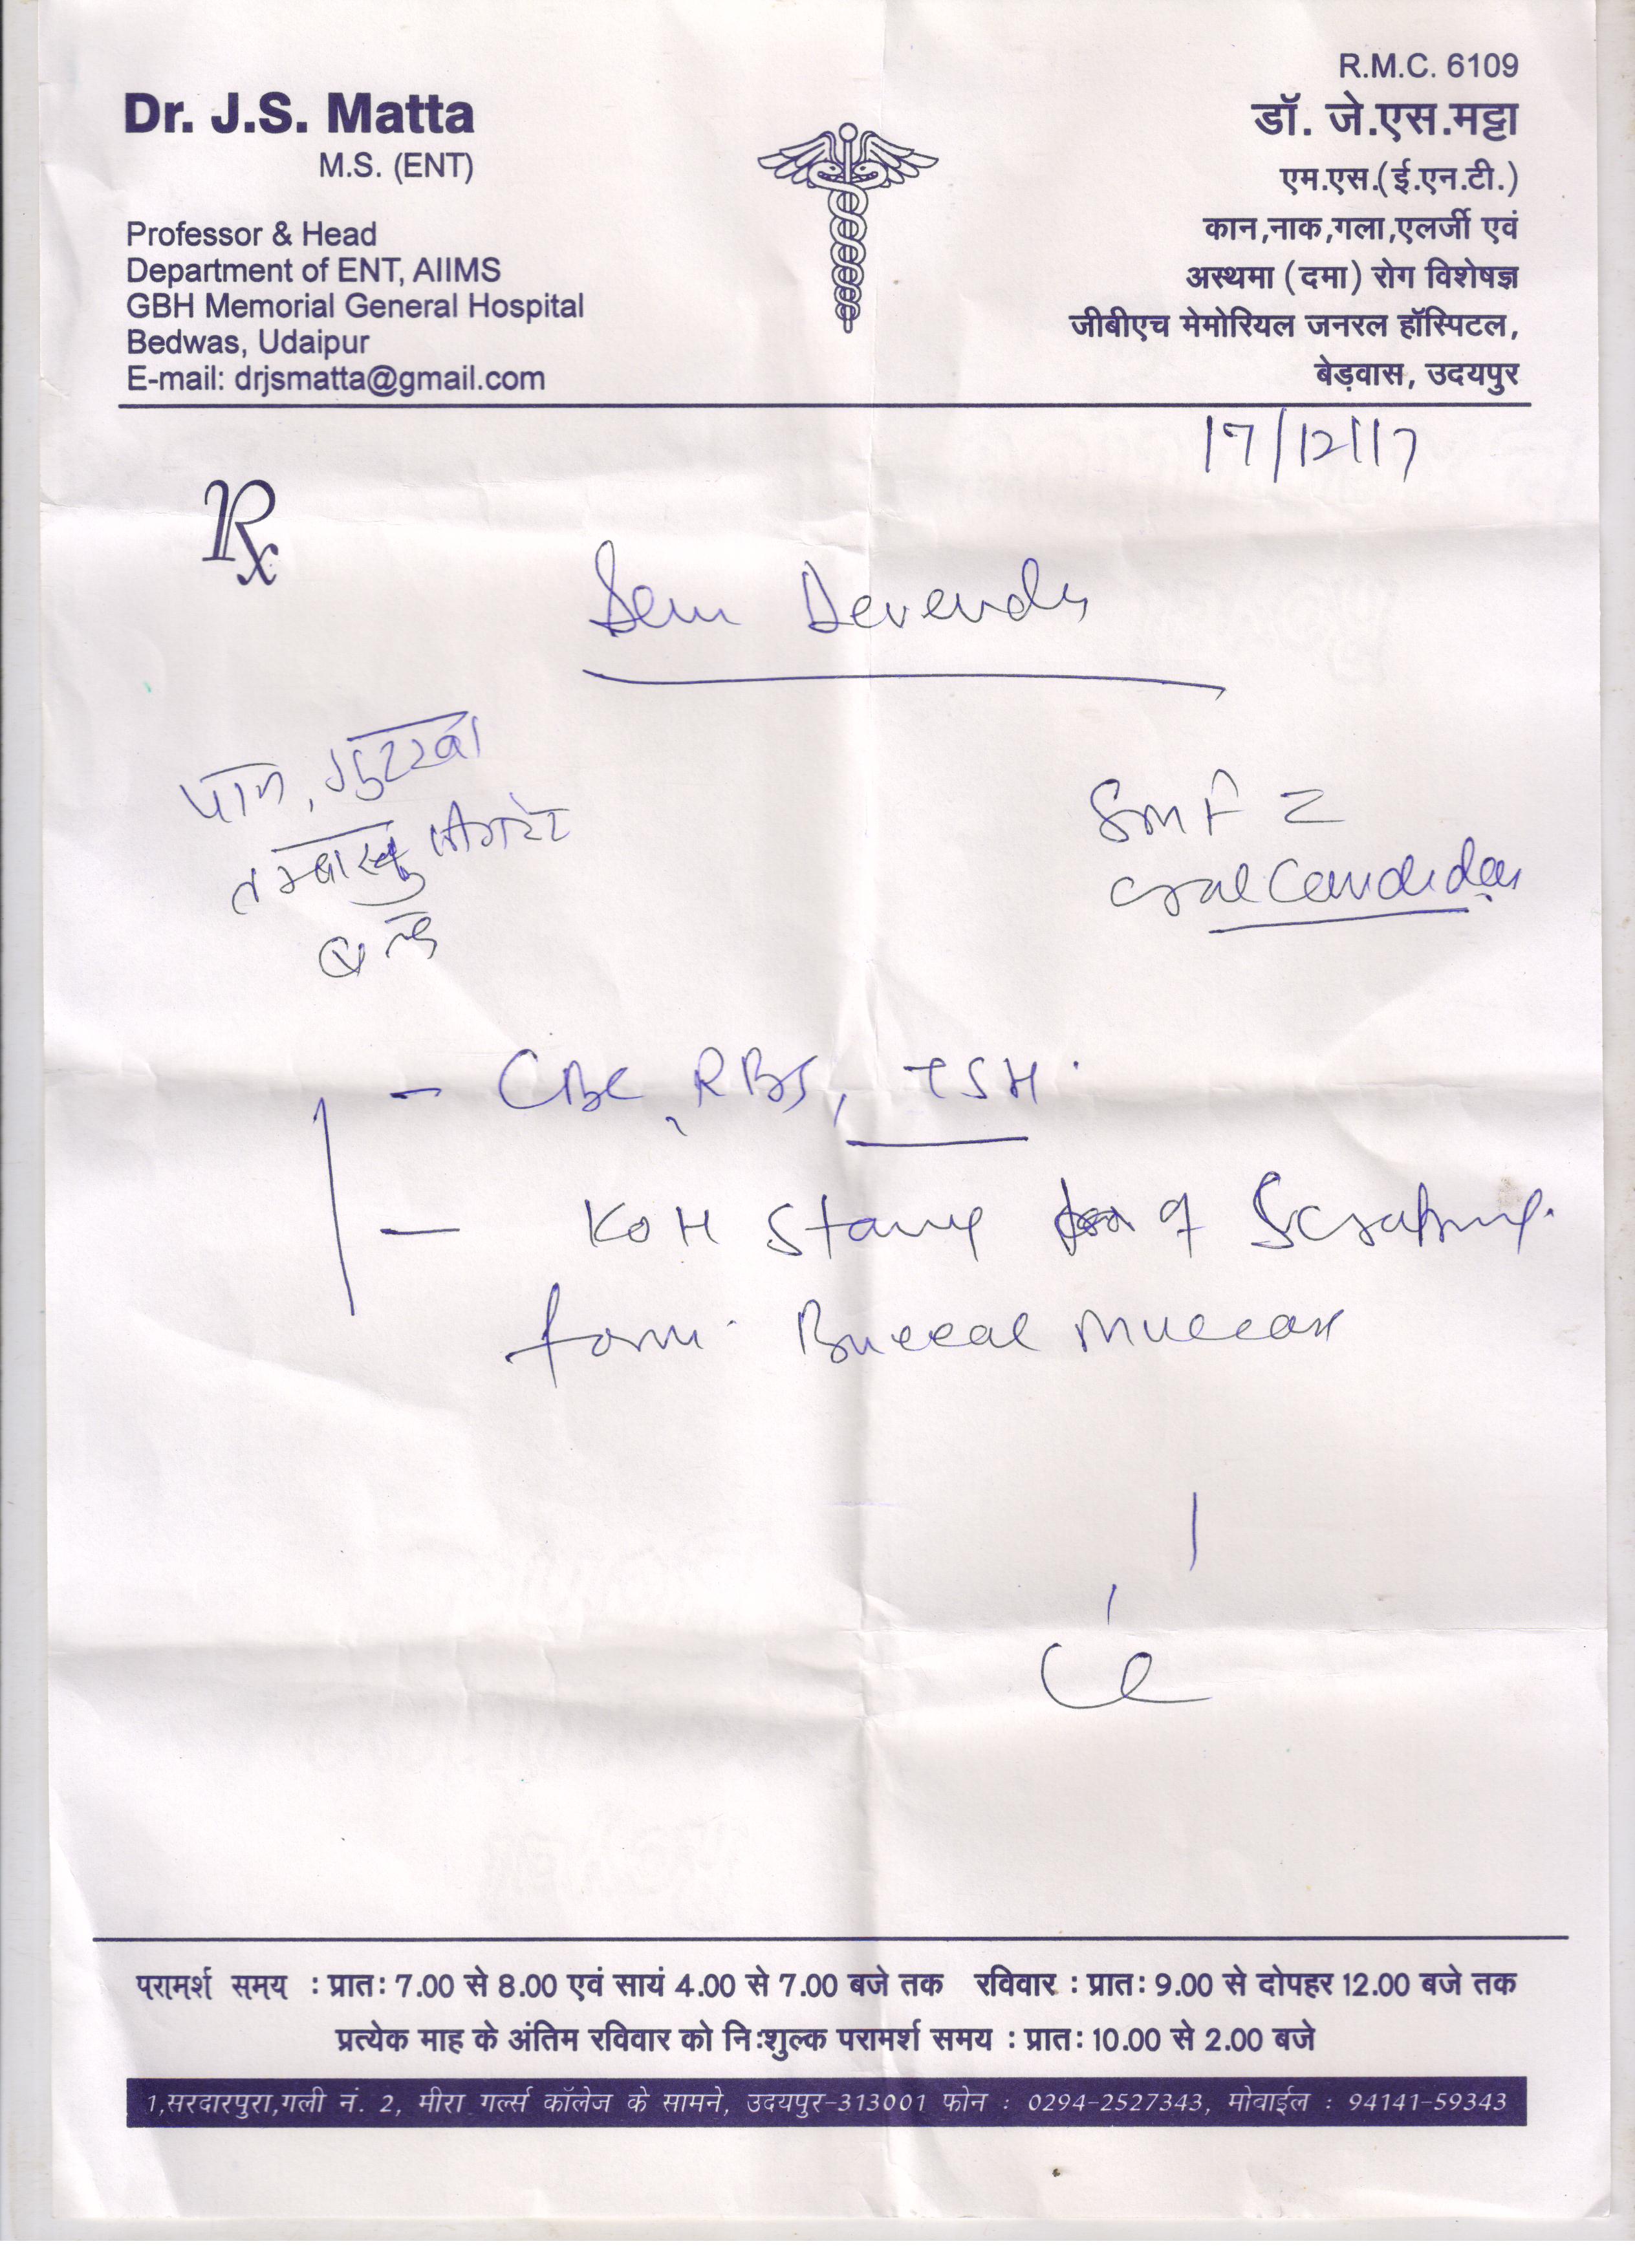 R.M.C. 6109
Dr. J.S. Matta
M.S. (ENT)
Professor & Head
Department of ENT, AIIMS
GBH Memorial General Hospital
Bedwas, Udaipur
E-mail: drjsmatta@gmail.com
डॉ. जे.एस.मट्टा
एम.एस.(ई.एन.टी.)
कान,नाक,गला,एलर्जी एवं
अस्थमा (दमा) रोग विशेषज्ञ
जीबीएच मेमोरियल जनरल हॉस्पिटल,
बेड़वास, उदयपुर
17/12/17
Rx
Devendra
पान, गुटखा
तम्बाखू सीगरेट
बन्द
SMF
oral Candidas
- CBC, RBS, TSH
- KOH of Scraping
form Buccal
परामर्श समय : प्रातः 7.00 से 8.00 एवं सायं 4.00 से 7.00 बजे तक रविवार : प्रातः 9.00 से दोपहर 12.00 बजे तक
प्रत्येक माह के अंतिम रविवार को नि:शुल्क परामर्श समय : प्रातः 10.00 से 2.00 बजे
1,सरदारपुरा,गली नं. 2, मीरा गर्ल्स कॉलेज के सामने, उदयपुर-313001 फोन : 0294-2527343, मोबाईल : 94141-59343